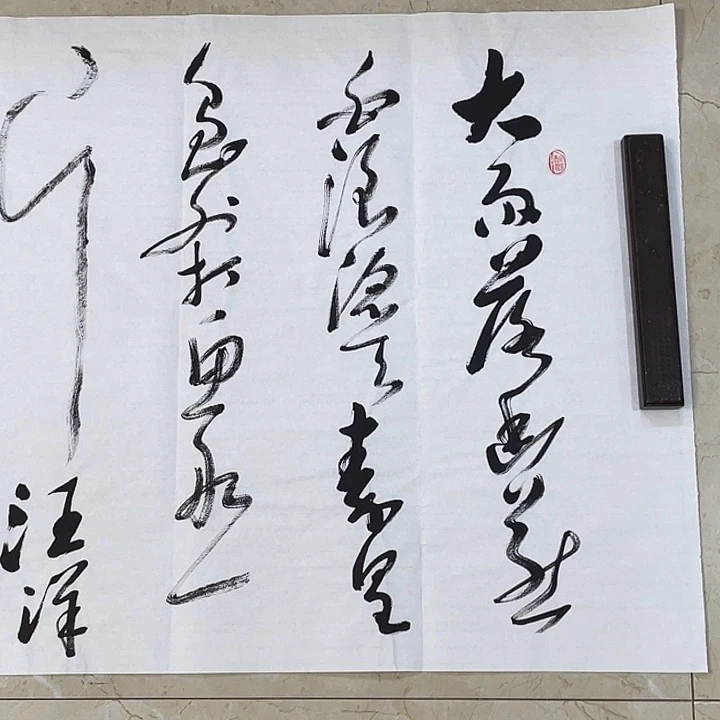 大雨落幽燕
白浪滔天秦皇
島外打魚船一
片汪洋